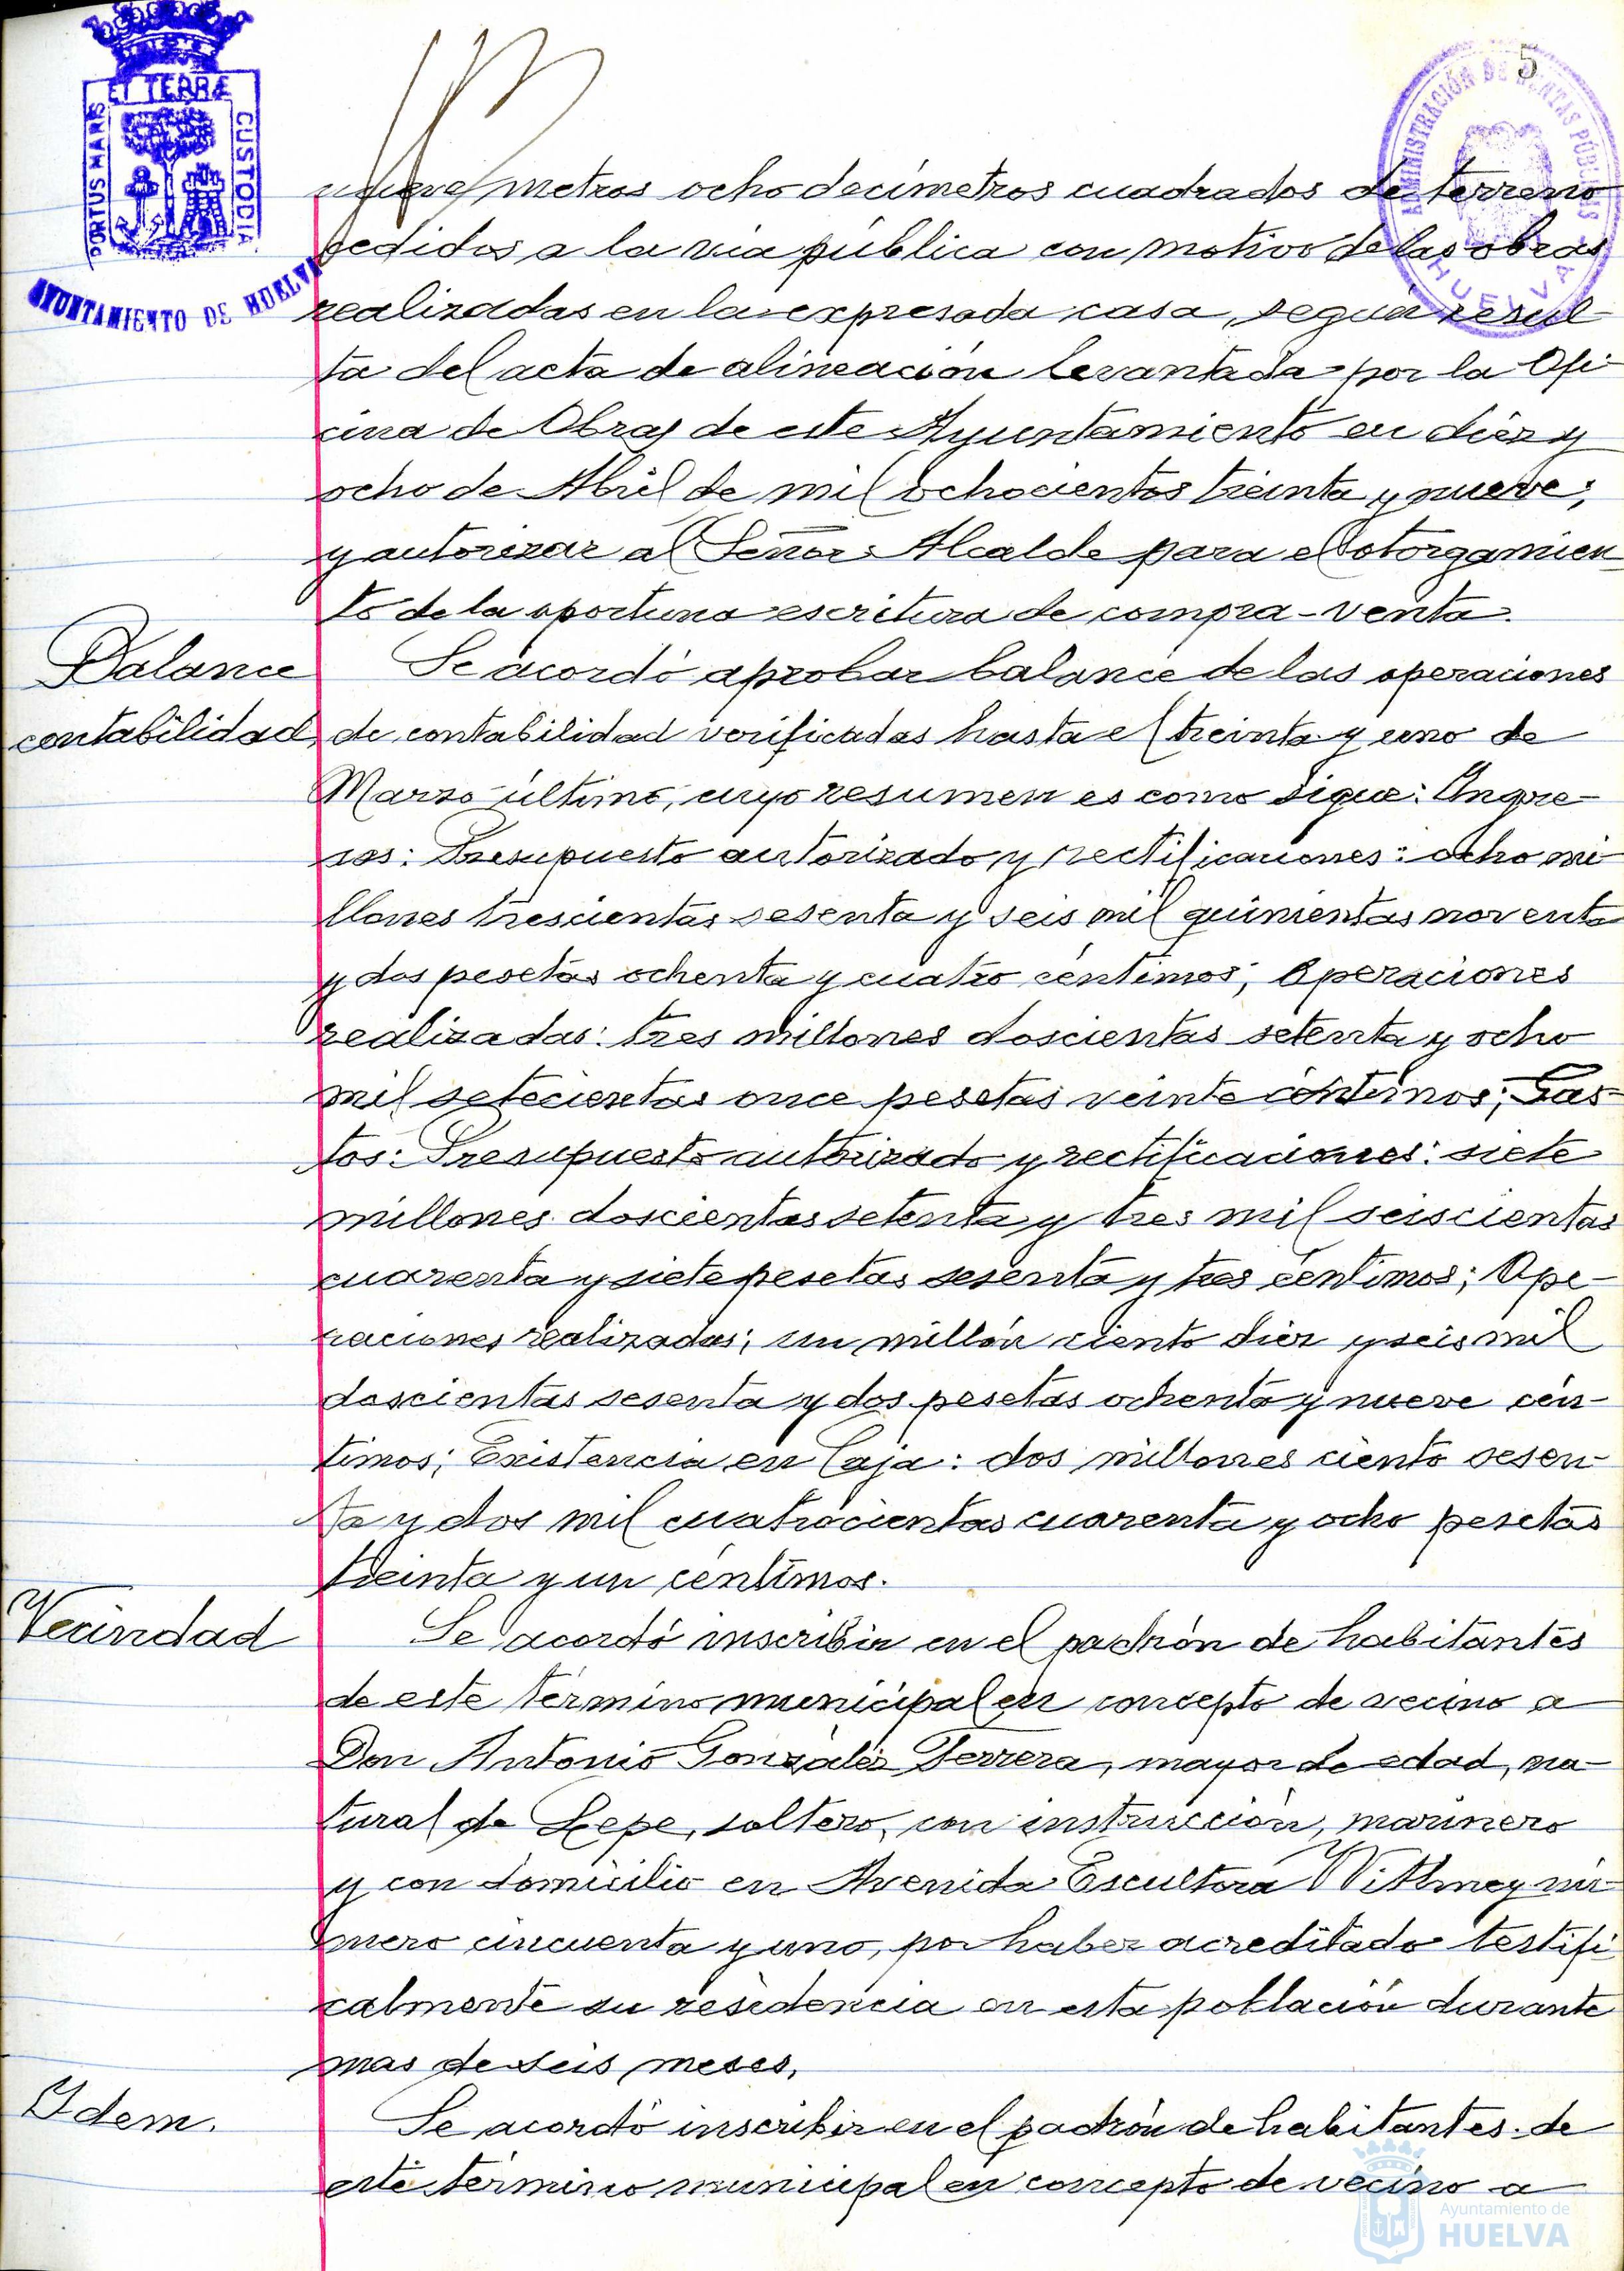 5
PORTUS MARIS ET TERRÆ CUSTODIA
AYUNTAMIENTO DE HUELVA
ADMINISTRACIÓN DE RENTAS PÚBLICAS
HUELVA
nueve metros ocho decímetros cuadrados de terreno
cedidos a la via pública con motivo de las obras
realizadas en la expresada casa, según resul-
ta del acta de alineación levantada por la Ofi-
cina de Obras de este Ayuntamiento en diez y
ocho de Abril de mil ochocientos treinta y nueve;
y autorizar al Señor Alcalde para el otorgamien-
to de la oportuna escritura de compra-venta.
Balance
contabilidad
Se acordó aprobar balance de las operaciones
de contabilidad verificadas hasta el treinta y uno de
Marzo último, cuyo resumen es como sigue: Ingre-
sos: Presupuesto autorizado y rectificaciones: ocho mi-
llones trescientas sesenta y seis mil quinientas noventa
y dos pesetas ochenta y cuatro céntimos; Operaciones
realizadas: tres millones doscientas setenta y ocho
mil setecientas once pesetas veinte céntimos; Gas-
tos: Presupuesto autorizado y rectificaciones: siete
millones doscientas setenta y tres mil seiscientas
cuarenta y siete pesetas sesenta y tres céntimos; Ope-
raciones realizadas; un millón ciento diez y seis mil
doscientas sesenta y dos pesetas ochenta y nueve cén-
timos; Existencia en Caja: dos millones ciento sesen-
ta y dos mil cuatrocientas cuarenta y ocho pesetas
treinta y un céntimos.
Vecindad
Se acordó inscribir en el padrón de habitantes
de este término municipal en concepto de vecino a
Don Antonio González Ferrera, mayor de edad, na-
tural de Lepe, soltero, con instrucción, marinero
y con domicilio en Avenida Escultora Withney nú-
mero cincuenta y uno, por haber acreditado testifi-
calmente su residencia en esta población durante
mas de seis meses.
Idem.
Se acordó inscribir en el padrón de habitantes de
este término municipal en concepto de vecino a
Ayuntamiento de
HUELVA